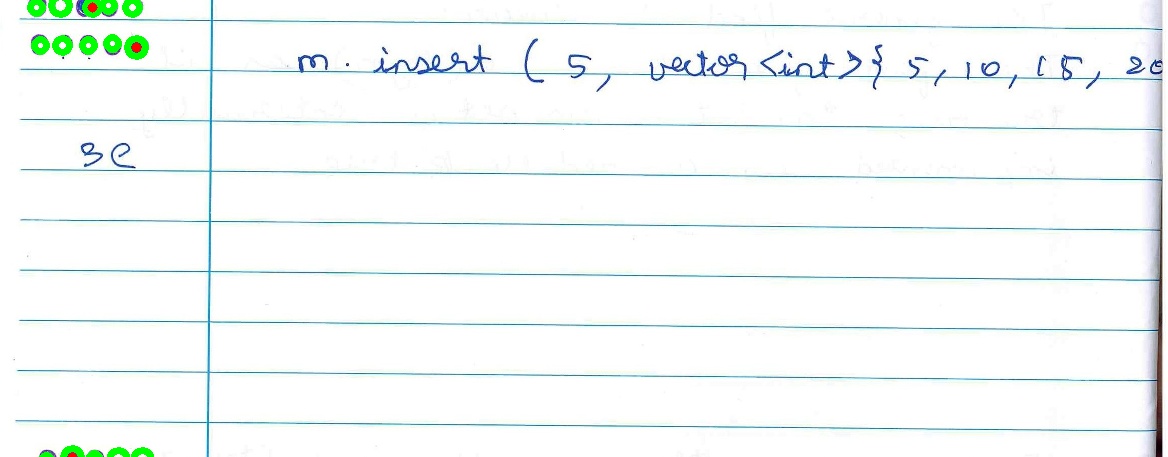 m. insert ( 5, vector<int>{ 5, 10, 15, 20
3e